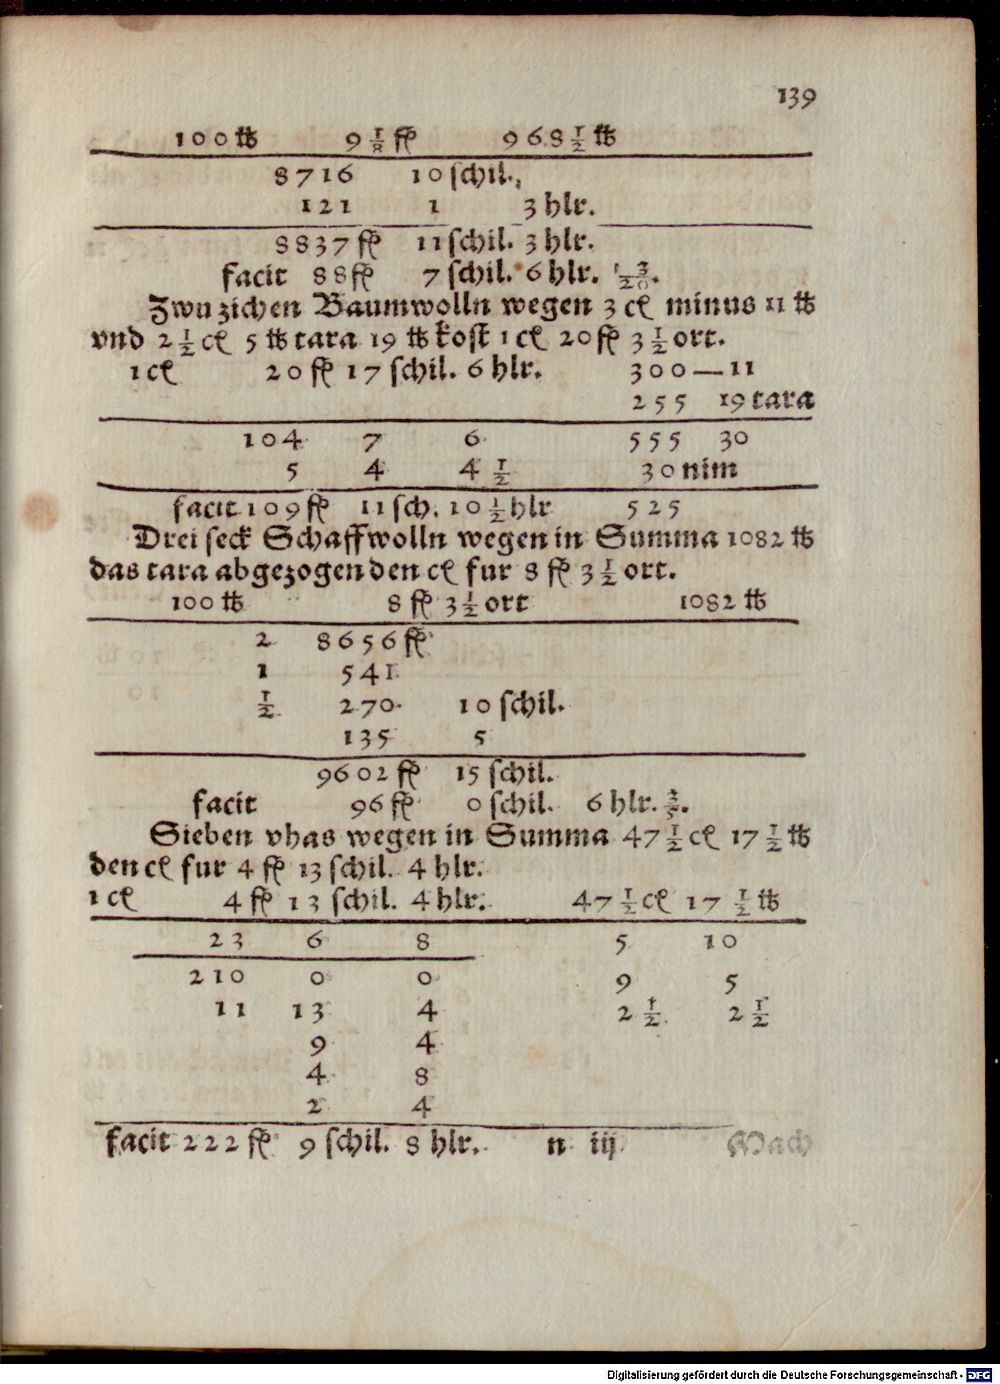 139
100 ℔ 9 1/8 fl 968 1/2 ℔
8716 10 schil.
121 1 3 hlr.
8837 fl 11 schil. 3 hlr.
facit 88 fl 7 schil. 6 hlr.
Zwu zichen Baumwolln wegen 3 cl minus 11 ℔
vnd 2 1/2 cl 5 ℔ tara 19 ℔ kost 1 cl 20 fl 3 1/2 ort.
1 cl 20 fl 17 schil. 6 hlr. 300 — 11
255 19 tara
104 7 6 555 30
5 4 4 1/2 30 nim
facit 109 fl 11 sch. 10 1/2 hlr 525
Drei seck Schaffwolln wegen in Summa 1082 ℔
das tara abgezogen den cl fur 8 fl 3 1/2 ort.
100 ℔ 8 fl 3 1/2 ort 1082 ℔
2 8656 fl
1 541
1/2 270 10 schil.
135 5
9602 fl 15 schil.
facit 96 fl 0 schil. 6 hlr. 3/5.
Sieben vhas wegen in Summa 47 1/2 cl 17 1/2 ℔
den cl fur 4 fl 13 schil. 4 hlr.
1 cl 4 fl 13 schil. 4 hlr. 47 1/2 cl 17 1/2 ℔
23 6 8 5 10
210 0 0 9 5
11 13 4 2 1/2 2 1/2
9 4
4 8
2 4
facit 222 fl 9 schil. 8 hlr. n iij Mach
Digitalisierung gefördert durch die Deutsche Forschungsgemeinschaft - DFG